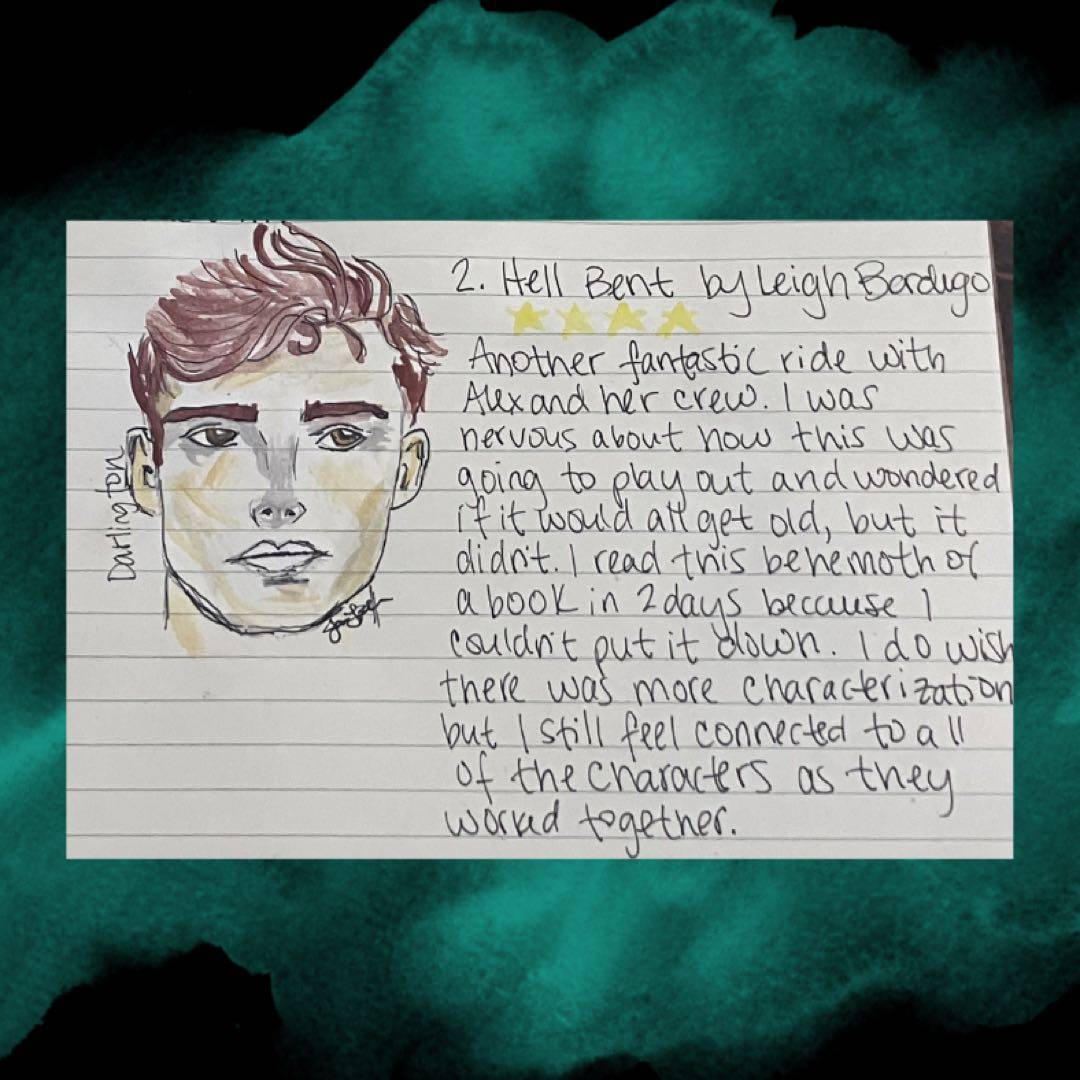 2. Hell Bent by Leigh Bardugo
Another fantastic ride with
Alex and her crew. I was
nervous about how this was
going to play out and wondered
if it would all get old, but it
didn't. I read this behemoth of
a book in 2 days because I
couldn't put it down. I do wish
there was more characterization
but I still feel connected to all
of the characters as they
worked together.
Darlington